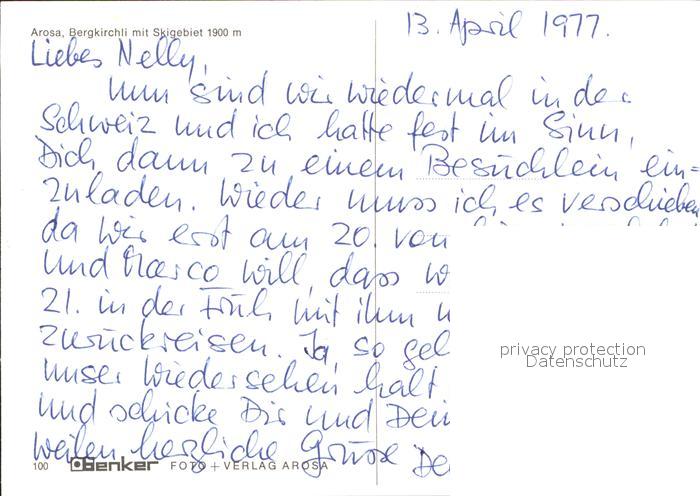 Arosa, Bergkirchli mit Skigebiet 1900 m
13. April 1977.
Liebes Nelly,
nun sind wir wiedermal in der
Schweiz und ich hatte fest im Sinn,
Dich dann zu einem Besüchlein ein=
zuladen. Wieder muss ich es verschieben
da wir erst am 20. von
und Marco will, dass
21. in der Früh mit ihm
zurückreisen. Ja, so
unser Wiedersehen halt
und schicke Dir und
weilen herzliche Grüsse
privacy protection
Datenschutz
100 Genker FOTO + VERLAG AROSA